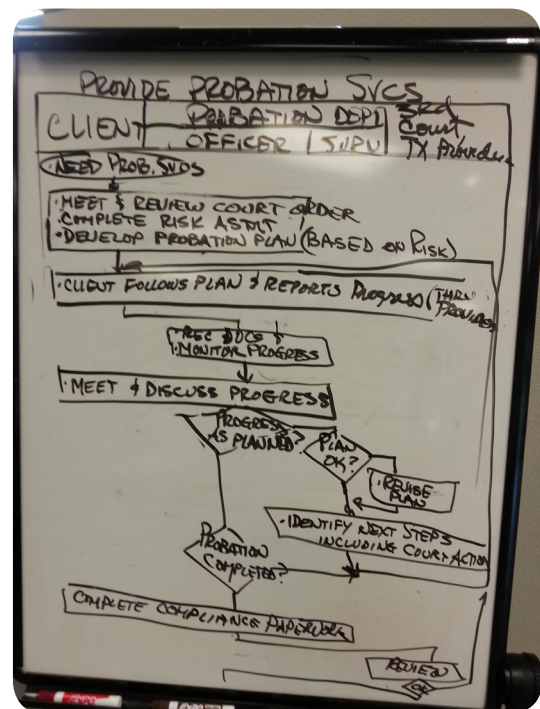 PROVIDE PROBATION SVCS
CLIENT
PROBATION DEPT
OFFICER | SUPV
3rd
Court,
TX Provider
NEED PROB. SVCS
• MEET & REVIEW COURT ORDER
• COMPLETE RISK ASMT
• DEVELOP PROBATION PLAN (BASED ON RISK)
• CLIENT FOLLOWS PLAN & REPORTS PROGRESS (THRU
PROVIDER
• REC DOCS &
• MONITOR PROGRESS
• MEET & DISCUSS PROGRESS
PROGRESS
AS PLANNED?
PLAN
OK?
• REVISE
PLAN
• IDENTIFY NEXT STEPS
INCLUDING COURT ACTION
PROBATION
COMPLETED?
COMPLETE COMPLIANCE PAPERWORK
REVIEW
OK
EXPO